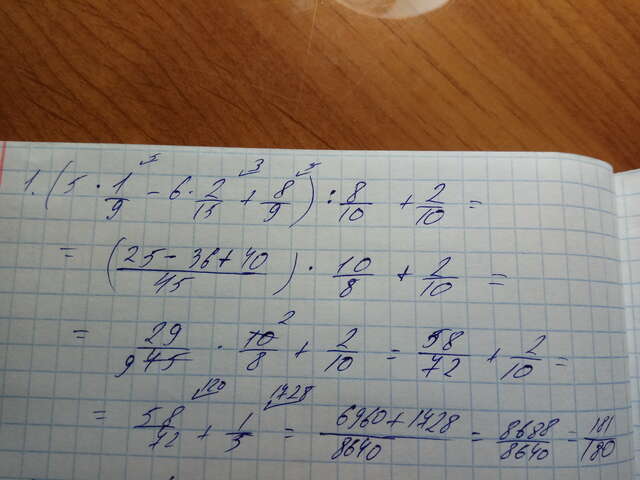 1. (5 · 1/9 ⁵ − 6 · 2/15 ³ + 8/9 ⁵) : 8/10 + 2/10 =
= ((25 − 36 + 40)/45) · 10/8 + 2/10 =
= 29/9 45 · 10 2/8 + 2/10 = 58/72 + 2/10 =
= 58/72 ¹²⁰ + 1/5 ¹⁷²⁸ = (6960 + 1728)/8640 = 8688/8640 = 181/180